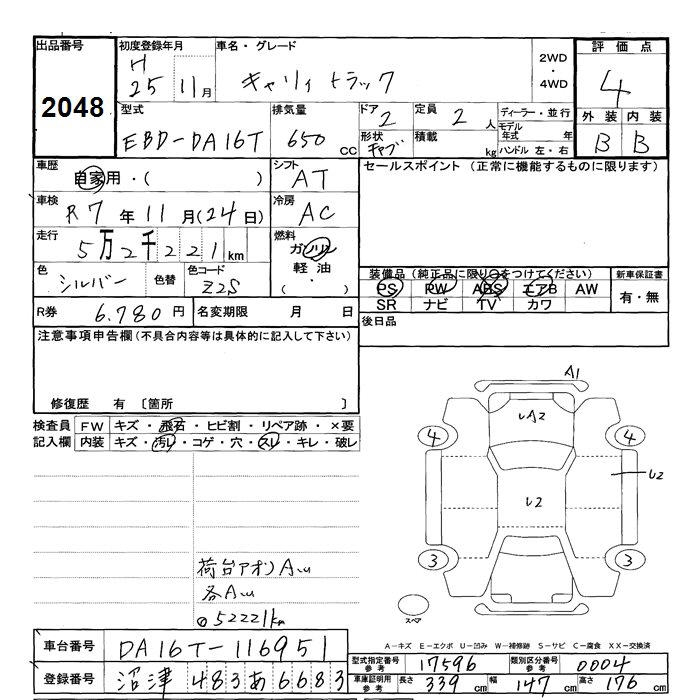 出品番号
2048
初度登録年月
H
25 11月
車名・グレード
キャリィ トラック
2WD
・
4WD
評価点
4
外装 内装
B B
型式
EBD-DA16T
排気量
650 cc
ドア
2
定員
2 人
形状
キャブ
積載
kg
ディーラー・並行
モデル
年式 年
ハンドル 左・右
車歴
自家用・( )
シフト
AT
セールスポイント (正常に機能するものに限ります)
車検
R7年11月(24日)
冷房
AC
走行
5万2千221km
燃料
ガソリン
軽油
( ・ )
色
シルバー
色替
色コード
Z2S
装備品(純正品に限り○をつけてください)
PS PW ABS エアB AW
SR ナビ TV カワ
新車保証書
有・無
R券 6.780円
名変期限 月 日
後日品
注意事項申告欄(不具合内容等は具体的に記入して下さい)
修復歴 有 〔箇所 〕
検査員
記入欄
FW キズ・飛石・ヒビ割・リペア跡・×要
内装 キズ・汚れ・コゲ・穴・スレ・キレ・破レ
A1
UA2
4
4
U2
U2
3
3
スペア
荷台アオリAU
各AU
52221km
A-キズ E-エクボ U-凹み W-補修跡 S-サビ C-腐食 XX-交換済
車台番号 DA16T-116951
登録番号 沼津 483あ6683
型式指定番号
参考
17596
類別区分番号
参考
0004
車庫証明用
参考
長さ 339cm 幅 147cm 高さ 176cm